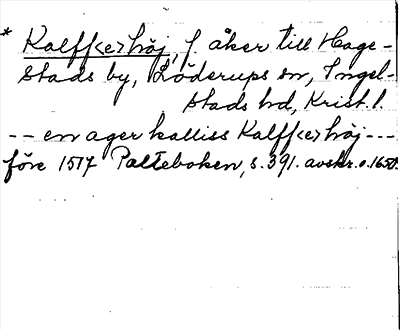 * Kalff<e>höj, f. åker till Hage-
stads by, Löderups sn, Ingel-
stads hd, Krist. l.
-- en ager kalliss Kalff<e>höj ---
före 1517 Palteboken, s. 391. avskr. o. 1650.